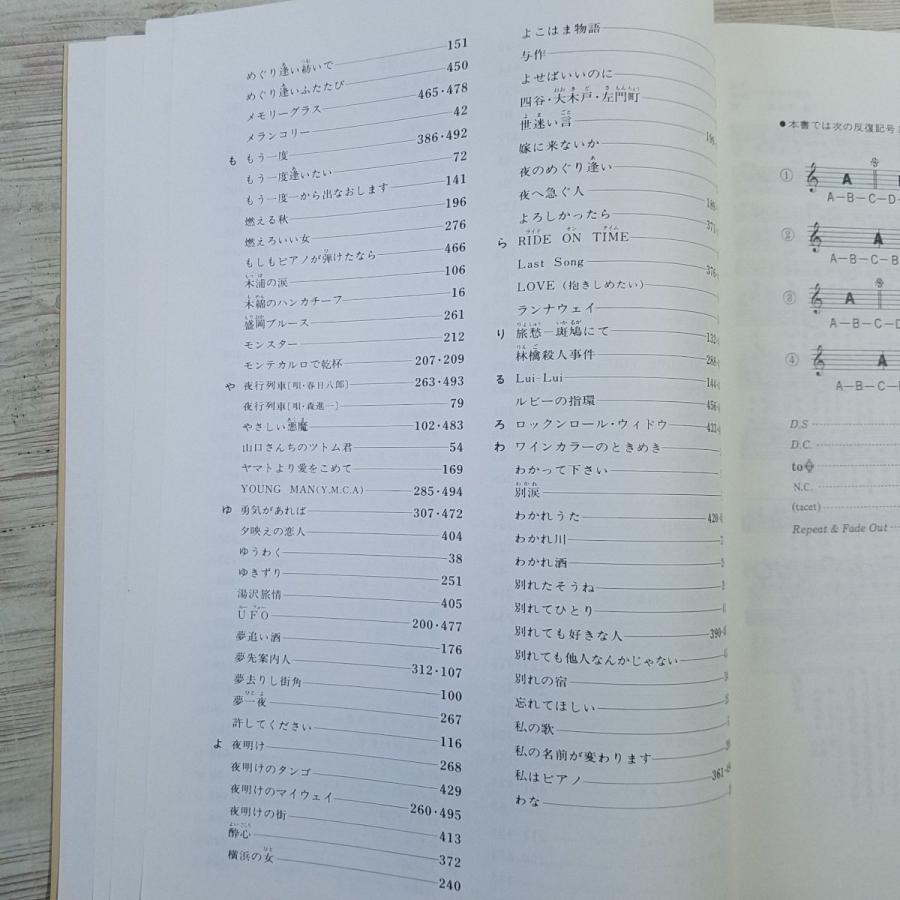 めぐり逢い紡いで 151
めぐり逢いふたたび 450
メモリーグラス 465・478
メランコリー 42
も もう一度 386・492
もう一度逢いたい 72
もう一度一から出なおします 141
燃える秋 196
燃えろいい女 276
もしもピアノが弾けたなら 466
木浦の涙 106
木綿のハンカチーフ 16
盛岡ブルース 261
モンスター 212
モンテカルロで乾杯 207・209
や 夜行列車[唄・春日八郎] 263・493
夜行列車[唄・森進一] 79
やさしい悪魔 102・483
山口さんちのツトム君 54
ヤマトより愛をこめて 169
YOUNG MAN(Y.M.C.A) 285・494
ゆ 勇気があれば 307・472
夕映えの恋人 404
ゆうわく 38
ゆきずり 251
湯沢旅情 405
UFO 200・477
夢追い酒 176
夢先案内人 312・107
夢去りし街角 100
夢一夜 267
許してください 116
よ 夜明け 268
夜明けのタンゴ 429
夜明けのマイウェイ 260・495
夜明けの街 413
酔心 372
横浜の女 240
よこはま物語
与作
よせばいいのに
四谷・大木戸・左門町
世迷い言
嫁に来ないか
夜のめぐり逢い
夜へ急ぐ人
よろしかったら 371
ら RIDE ON TIME
Last Song 376
LOVE(抱きしめたい)
ランナウェイ
り 旅愁―斑鳩にて 132
林檎殺人事件 288
る Lui-Lui 144
ルビーの指環 456
ろ ロックンロール・ウィドウ 432
わ ワインカラーのときめき
わかって下さい
別涙
わかれうた 420
わかれ川
わかれ酒
別れたそうね
別れてひとり
別れても好きな人 390
別れても他人なんかじゃない
別れの宿
忘れてほしい
私の歌
私の名前が変わります
私はピアノ 361
わな
●本書では次の反復記号
① A
A—B—C—D
② A
A—B—C—B
③ A
A—B—C—D
④ A
A—B—C—
D.S
D.C.
to
N.C.
(tacet)
Repeat & Fade Out